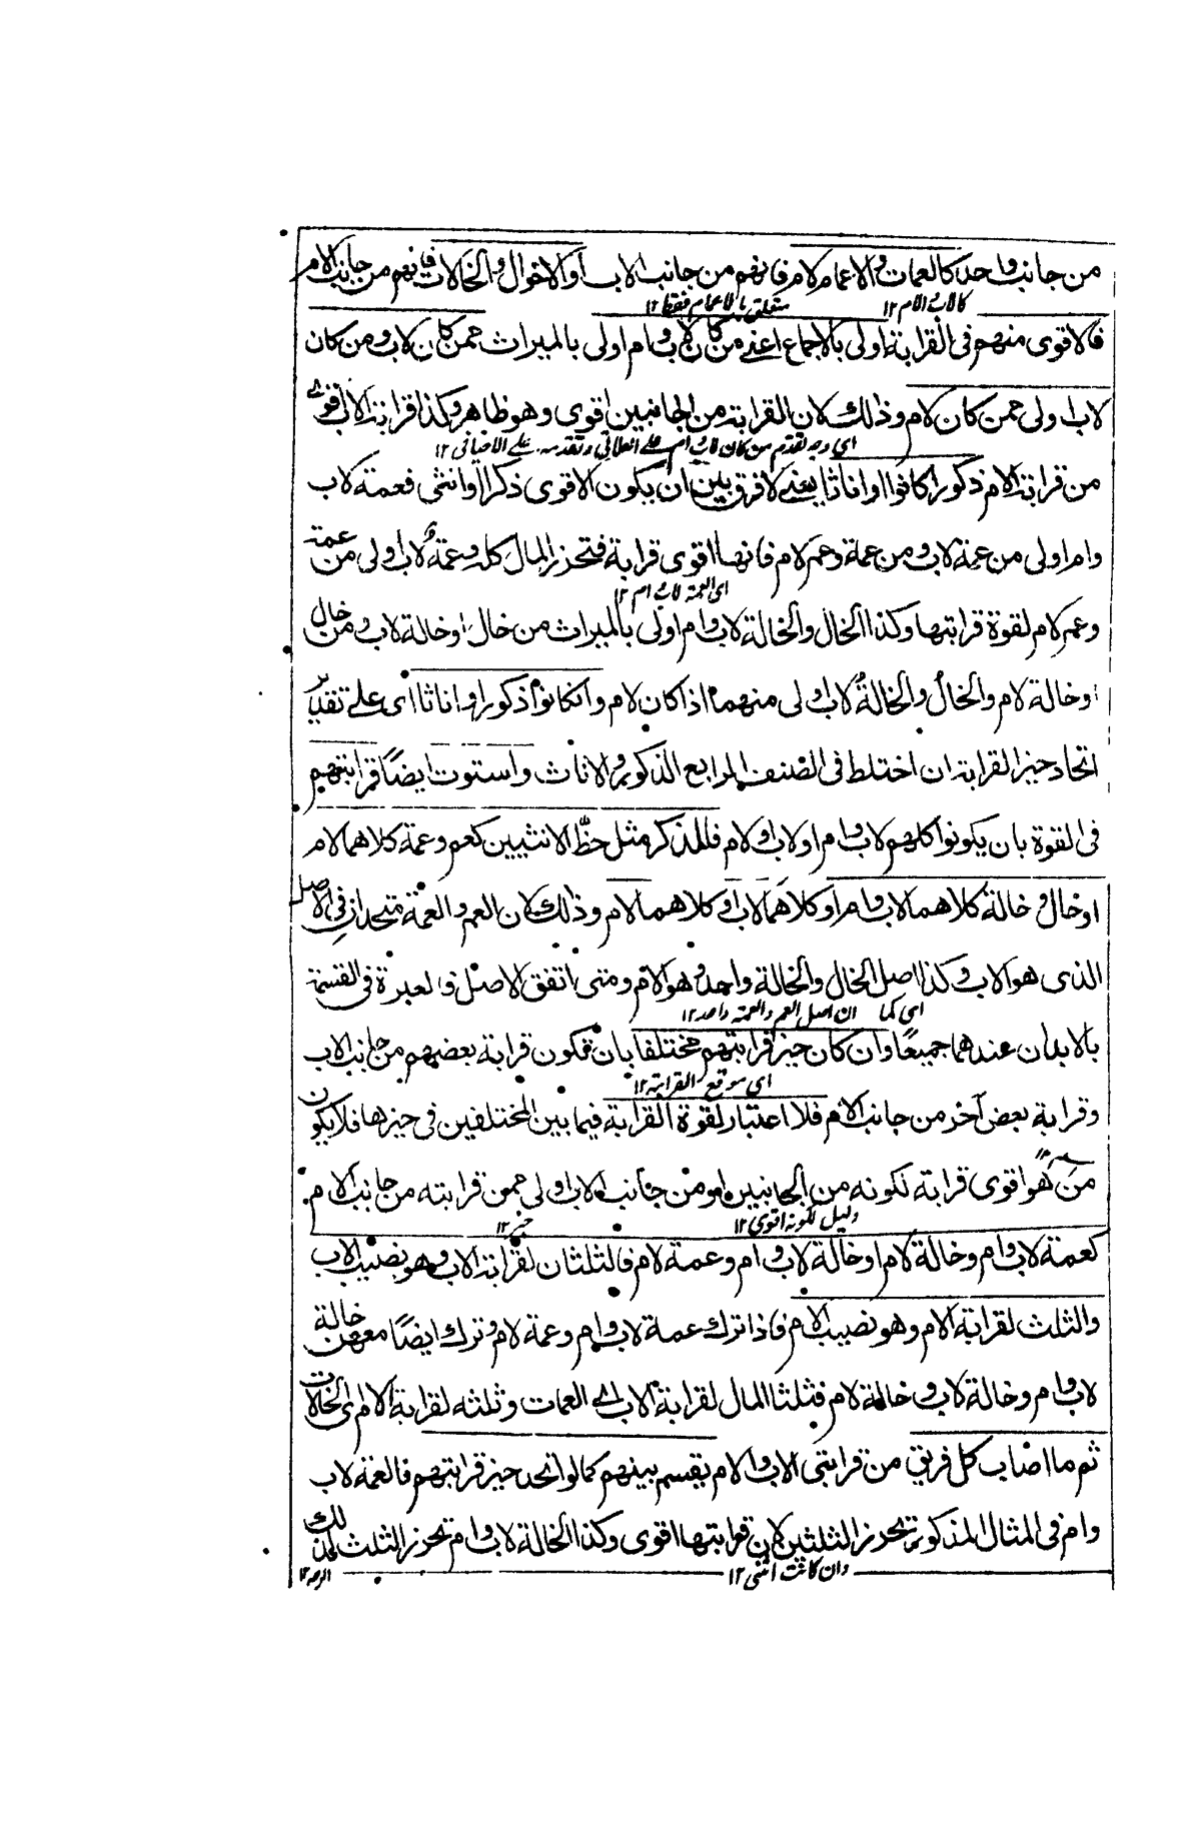 من جانب واحد كالعمات والاعمام لام فانهم من جانب الاب او الاخوال والخالات فانهم من جانب الام
كالاب والام ١٢ متعلق بالاعمام فقط ١٢
فالاقوى منهم فى القرابة اولى بالاجماع اعنے من كان لاب وام اولى بالميراث ممن كان لاب ومن كان
لاب اولى ممن كان لام وذلك لان القرابة من الجانبين اقوى وهو ظاهر وكذا قرابة الاب اقوى
اى وجه تقدم من كان لاب وام على العلاتى وتقدمه على الاخيافى ١٢
من قرابة الام ذكورا كانوا او اناثا يعنے لا فرق بين ان يكون الاقوى ذكرا او انثى فعمة لاب
وام اولى من عمة لاب ومن عمة وعم لام فانها اقوى قرابة فتحرز المال كله وعمة لاب اولى من عمة
اى العمة لاب وام ١٢
وعم لام لقوة قرابتها وكذا الخال والخالة لاب وام اولى بالميراث من خال او خالة لاب ومن خال
او خالة لام والخال والخالة لاب اولى منهما اذا كان لام وان كانوا ذكورا واناثا اى على تقدير
اتحاد حيز القرابة ان اختلط فى الصنف الرابع الذكور والاناث واستوت ايضًا قرابتهم
فى القوة بان يكونوا كلهم لاب وام او لاب او لام فللذكر مثل حظّ الانثيين كعم وعمة كلاهما لام
او خال و خالة كلاهما لاب وام او كلاهما لاب او كلاهما لام وذلك لان العم والعمة متحدان فى الاصل
الذى هو الاب وكذا اصل الخال والخالة واحد وهو الام ومتى اتفق الاصل فالعبرة فى القسمة
اى كما ان اصل العم والعمة واحد ١٢
بالابدان عندهما جميعًا وان كان حيز قرابتهم مختلفا بان تكون قرابة بعضهم من جانب الاب
اى موقع القرابة ١٢
وقرابة بعض آخر من جانب الام فلا اعتبار لقوة القرابة فيما بين المختلفين فى حيزها فلا يكون
من هو اقوى قرابة لكونه من الجانبين او من جانب الاب اولى ممن قرابته من جانب الام
دليل لكونه اقوى ١٢ خبر ١٢
كعمة لاب وام وخالة لام او خالة لاب وام وعمة لام فالثلثان لقرابة الاب وهو نصيب الاب
والثلث لقرابة الام وهو نصيب الام فاذا ترك عمة لاب وام وعمة لام وترك ايضًا معهن خالة
لاب وام وخالة لاب و خالة لام فثلثا المال لقرابة الاب اى العمات وثلثه لقرابة الام اى الخالات
ثم ما اصاب كل فريق من قرابتى الاب والام يقسم بينهم كما لو اتحد حيز قرابتهم فالعمة لاب
وام فى المثال المذكور تحرز الثلثين لان قرابتها اقوى وكذا الخالة لاب وام تحرز الثلث لذلك
وان كانت انثى ١٢